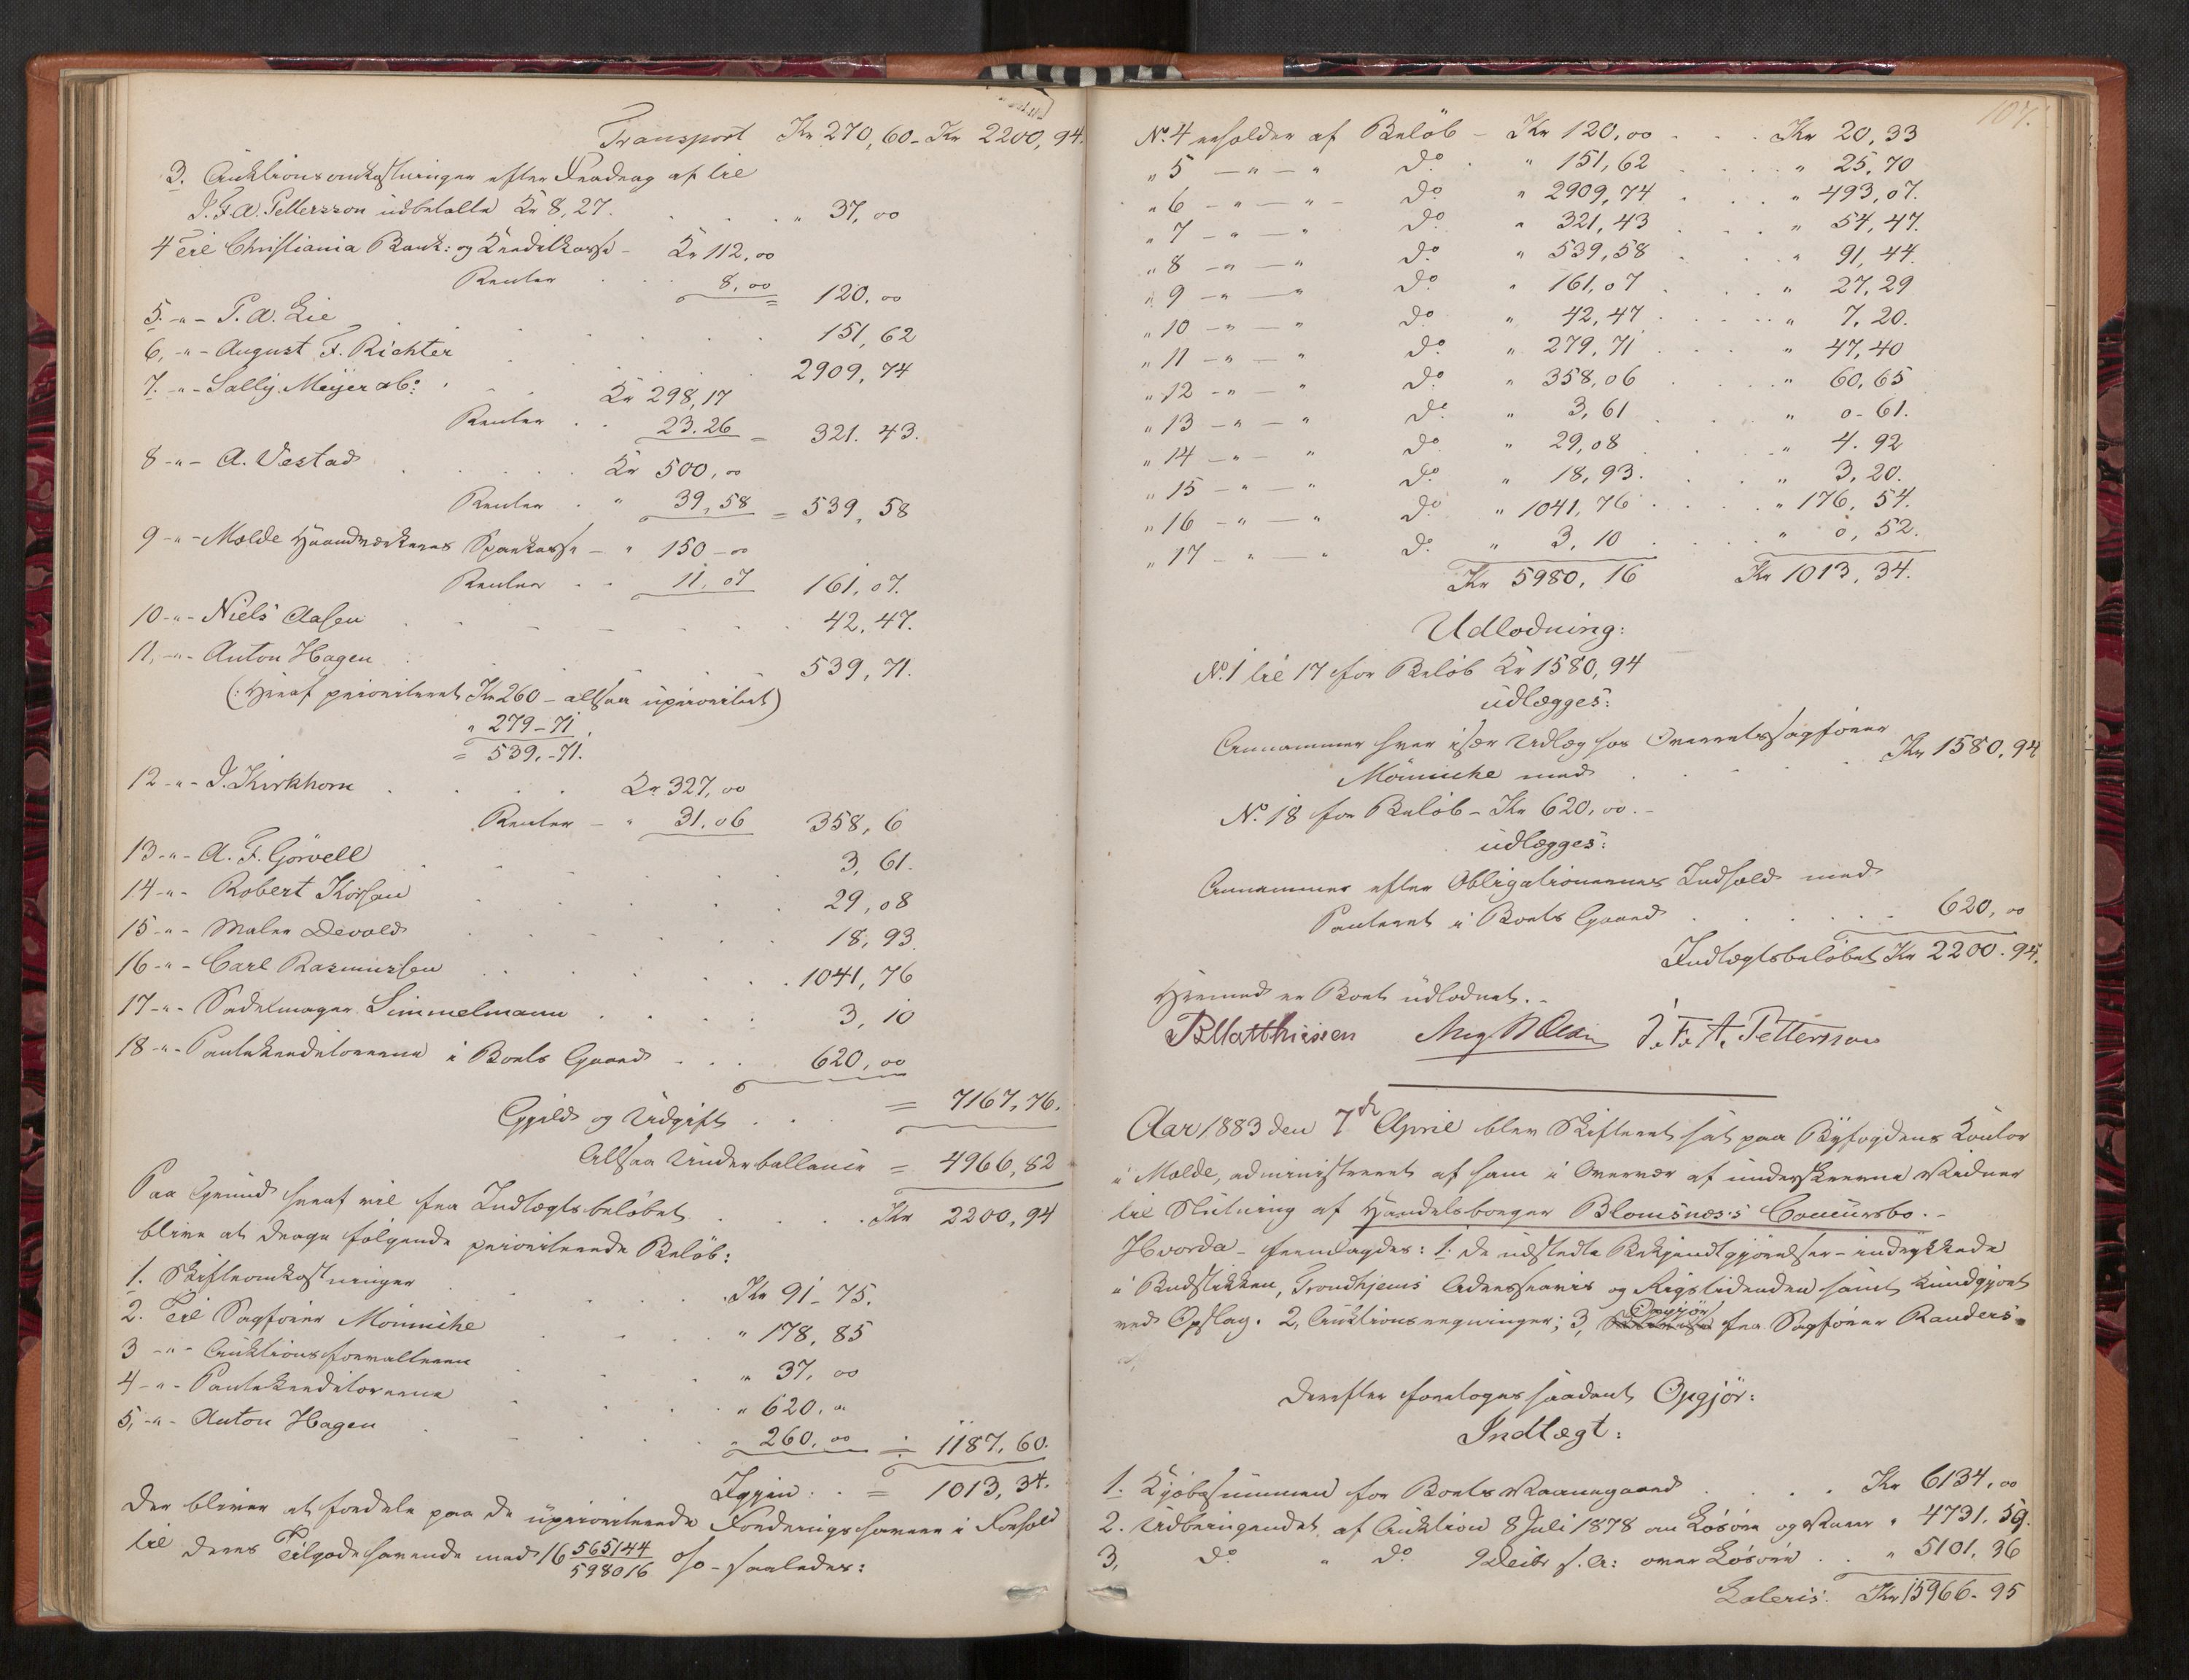 Transport Kr 270,60 - Kr 2200,94.
3. Auktionsomkostninger efter Fradrag af til
J. F. A. Pettersson udbetalte Kr 8,27. " 37,00
4 Til Christiania Bank: og Kreditkasse - Kr 112,00
Renter 8,00 = 120,00
5. -"- P. A. Lie 151,62
6, -"- August F. Richter 2909,74
7. -"- Sally Meyer ab: Kr 298,17
Renter 23.26 = 321.43.
8 -"- A. Vestad Kr 500,00
Renter " 39,58 = 539,58
9 -"- Molde Haandværkeres Sparekasse - " 150-00
Renter 11,07 161,07.
10 -"- Niels Aasen 42,47.
11, -"- Anton Hagen 539,71.
(: Heraf prioriteret Kr 260 - altsaa uprioritert)
" 279-71.
= 539.-71.
12 -"- J. Kirkhorn Kr 327,00
Renter - " 31.06 358,6
13 -"- A. F. Görvell 3,61.
14 -"- Robert Korsan 29,08
15 -"- Maler Devold 18,93.
16 -"- Carl Rasmussen 1041,76
17 -"- Sadelmager Simmelmann 3,10
18 -"- Pantekreditorerne i Boets Gaard 620,00
Gjæld og Udgift = 7167,76.
Altsaa Underballance = 4966,82
Paa Grund heraf vil fra Indtægtsbeløbet Kr 2200,94
blive at drage følgende prioriterede Beløb:
1. Skifteomkostninger Kr 91-75.
2. Til Sagfører Mönniche " 178,85
3 -"- Auktionsforvalteren " 37,00
4 -"- Pantekreditorerne " 620,"
5, -"- Anton Hagen " 260,00 ÷ 1187,60.
Igjen = 1013,34.
der bliver at fordele paa de uprioriterede Fordringshavere i Forhold
til deres Tilgodehavende med 16 565144/598016 % - saaledes:
107.
No. 4 erholder af Beløb - Kr 120,00 Kr 20,33
" 5 -"-" do " 151,62 " 25,70
" 6 -"-" do " 2909,74 " 493,07.
" 7 -"-" do " 321,43 " 54,47.
" 8 -"-" do " 539,58 " 91,44.
" 9 -"-" do " 161,07 " 27,29
" 10 -"-" do " 42,47 " 7,20.
" 11 -"-" do " 279,71 " 47,40
" 12 -"-" do " 358,06 " 60,65
" 13 -"-" do " 3,61 " 0-61.
" 14 -"-" do " 29,08 " 4.92
" 15 -"-" do " 18,93. " 3,20.
" 16 -"-" do " 1041,76 " 176,54.
" 17 -"-" do " 3,10 " 0,52.
Kr 5980,16 Kr 1013,34.
Udlodning:
No. 1 til 17 for Beløb Kr 1580,94
udlægges:
Annammer hver især Udlæg hos Overretssagfører
Mönniche med Kr 1580,94
No. 18 for Beløb - Kr 620,00.-
udlægges:
Annammer efter Obligationernes Indhold med
Panteret i Boets Gaard 620,00
Indtægtsbeløbet Kr 2200.94.
Hermed er Boet udlodnet.-
P. Matthiesen J. F. A. Pettersson
Aar 1883 den 7de April blev Skifteret sat paa Byfogdens Kontor
i Molde, administreret af ham i Overvær af underskrevne Vidner
til Slutning af Handelsborger Blomsnæs's Concursbo.-
Hvorda - fremlagdes: 1. de udstedte Bekjendtgjørelser - indrykkede
i Budstikken, Trondhjems Adresseavis og Rigstidenden samt kundgjort
ved Opslag. 2, Auktionsregninger; 3, Opgjør fra Sagfører Randers.
Derefter foretoges saadant Opgjør:
Indtægt:
1. Kjøbesummen for Boets Vaaningsgaard Kr 6134,00
2. Udbringendet af Auktion 8 Juli 1878 over Løsøre og Varer " 4731,59.
3, do " do 9 Decbr s. A: over Løsøre " 5101,36
Lateris: Kr 15966-95